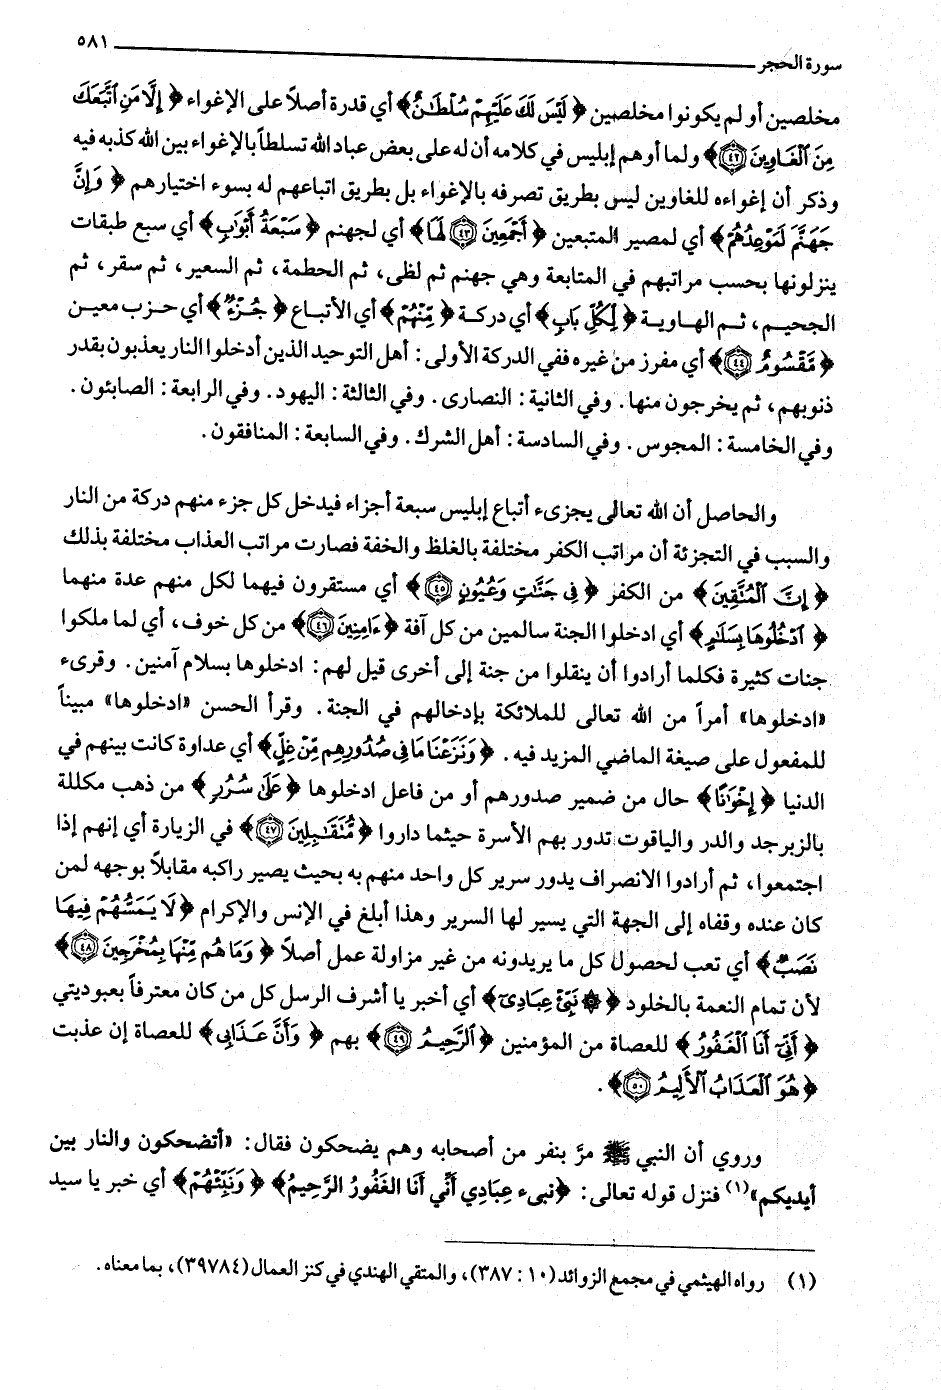 سورة الحجر ٥٨١
مخلصين أو لم يكونوا مخلصين ﴿ لَيْسَ لَكَ عَلَيْهِمْ سُلْطَـٰنٌ﴾ أي قدرة أصلاً على الإغواء ﴿ إِلَّا مَنِ ٱتَّبَعَكَ
مِنَ ٱلْغَاوِينَ ٤٢﴾ ولما أوهم إبليس في كلامه أن له على بعض عباد الله تسلطاً بالإغواء بين الله كذبه فيه
وذكر أن إغواءه للغاوين ليس بطريق تصرفه بالإغواء بل بطريق اتباعهم له بسوء اختيارهم ﴿ وَإِنَّ
جَهَنَّمَ لَمَوْعِدُهُمْ﴾ أي لمصير المتبعين ﴿ أَجْمَعِينَ ٤٣ لَهَا﴾ أي لجهنم ﴿ سَبْعَةُ أَبْوَٰبٍ﴾ أي سبع طبقات
ينزلونها بحسب مراتبهم في المتابعة وهي جهنم ثم لظى، ثم الحطمة، ثم السعير، ثم سقر، ثم
الجحيم، ثم الهاوية ﴿ لِكُلِّ بَابٍ﴾ أي دركة ﴿ مِّنْهُمْ﴾ أي الأتباع ﴿ جُزْءٌ﴾ أي حزب معين
﴿ مَّقْسُومٌ ٤٤﴾ أي مفرز من غيره ففي الدركة الأولى: أهل التوحيد الذين أدخلوا النار يعذبون بقدر
ذنوبهم، ثم يخرجون منها. وفي الثانية: النصارى. وفي الثالثة: اليهود. وفي الرابعة: الصابئون.
وفي الخامسة: المجوس. وفي السادسة: أهل الشرك. وفي السابعة: المنافقون.
والحاصل أن الله تعالى يجزىء أتباع إبليس سبعة أجزاء فيدخل كل جزء منهم دركة من النار
والسبب في التجزئة أن مراتب الكفر مختلفة بالغلظ والخفة فصارت مراتب العذاب مختلفة بذلك
﴿ إِنَّ ٱلْمُتَّقِينَ﴾ من الكفر ﴿ فِى جَنَّـٰتٍ وَعُيُونٍ ٤٥﴾ أي مستقرون فيهما لكل منهم عدة منهما
﴿ ٱدْخُلُوهَا بِسَلَـٰمٍ﴾ أي ادخلوا الجنة سالمين من كل آفة ﴿ ءَامِنِينَ ٤٦﴾ من كل خوف، أي لما ملكوا
جنات كثيرة فكلما أرادوا أن ينقلوا من جنة إلى أخرى قيل لهم: ادخلوها بسلام آمنين. وقرىء
«ادخلوها» أمراً من الله تعالى للملائكة بإدخالهم في الجنة. وقرأ الحسن «ادخلوها» مبيناً
للمفعول على صيغة الماضي المزيد فيه. ﴿ وَنَزَعْنَا مَا فِى صُدُورِهِم مِّنْ غِلٍّ﴾ أي عداوة كانت بينهم في
الدنيا ﴿ إِخْوَٰنًا﴾ حال من ضمير صدورهم أو من فاعل ادخلوها ﴿ عَلَىٰ سُرُرٍ﴾ من ذهب مكللة
بالزبرجد والدر والياقوت تدور بهم الأسرة حيثما داروا ﴿ مُّتَقَـٰبِلِينَ ٤٧﴾ في الزيارة أي إنهم إذا
اجتمعوا، ثم أرادوا الانصراف يدور سرير كل واحد منهم به بحيث يصير راكبه مقابلاً بوجهه لمن
كان عنده وقفاه إلى الجهة التي يسير لها السرير وهذا أبلغ في الإنس والإكرام ﴿ لَا يَمَسُّهُمْ فِيهَا
نَصَبٌ﴾ أي تعب لحصول كل ما يريدونه من غير مزاولة عمل أصلاً ﴿ وَمَا هُم مِّنْهَا بِمُخْرَجِينَ ٤٨﴾
لأن تمام النعمة بالخلود ﴿ ۞ نَبِّئْ عِبَادِىٓ﴾ أي أخبر يا أشرف الرسل كل من كان معترفاً بعبوديتي
﴿ أَنِّىٓ أَنَا ٱلْغَفُورُ﴾ للعصاة من المؤمنين ﴿ ٱلرَّحِيمُ ٤٩﴾ بهم ﴿ وَأَنَّ عَذَابِى﴾ للعصاة إن عذبت
﴿ هُوَ ٱلْعَذَابُ ٱلْأَلِيمُ ٥٠﴾.
وروي أن النبي ﷺ مرَّ بنفر من أصحابه وهم يضحكون فقال: «أتضحكون والنار بين
أيديكم»(١) فنزل قوله تعالى: ﴿نبىء عِبَادِي أَنِّي أَنَا الغَفُورُ الرَّحِيمُ﴾ ﴿ وَنَبِّئْهُمْ﴾ أي خبر يا سيد
(١) رواه الهيثمي في مجمع الزوائد (١٠ : ٣٨٧)، والمتقي الهندي في كنز العمال (٣٩٧٨٤)، بما معناه.